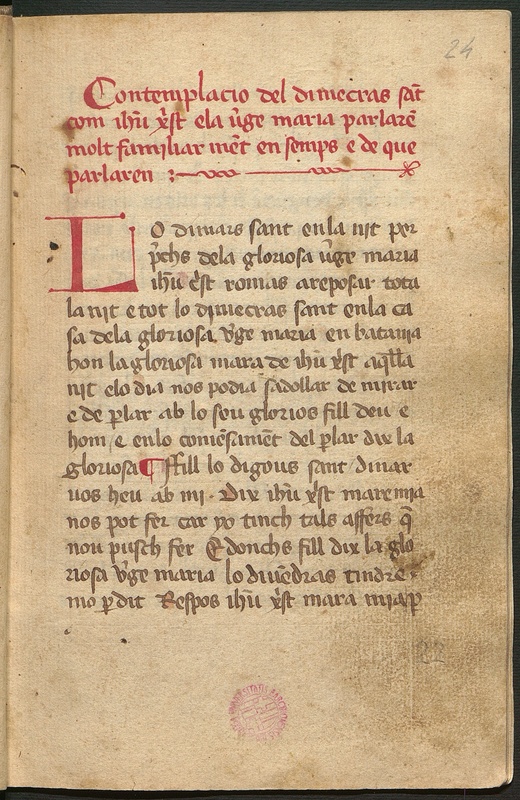 24
Contemplacio del dimecras sāt
com ihū xp̄st ela v̄ge maria parlarē
molt familiar mēt en semps e de que
parlaren :
LO dimars sant enla nit per
p̄chs dela gloriosa v̄ge maria
ihū xp̄st romas areposar tota
la nit e tot lo dimecras sant enla ca
sa dela gloriosa v̄ge maria en batania
hon la gloriosa mara de ihū xp̄st aq̄lla
nit elo dia nos podia sadollar de mirar
e de p̄lar ab lo seu glorios fill deu e
hom e enlo comēsamēt del p̄lar dix la
gloriosa ¶ Ffill lo digous sant dinar
uos heu ab mi · Dix ihū xp̄st mare mia
nos pot fer car yo tinch tals affers q̄
nou pusch fer E donchs fill dix la glo
riosa v̄ge maria lo diuēdras tindre
mo p̄dit Respos ihū xp̄st mara mia p̄